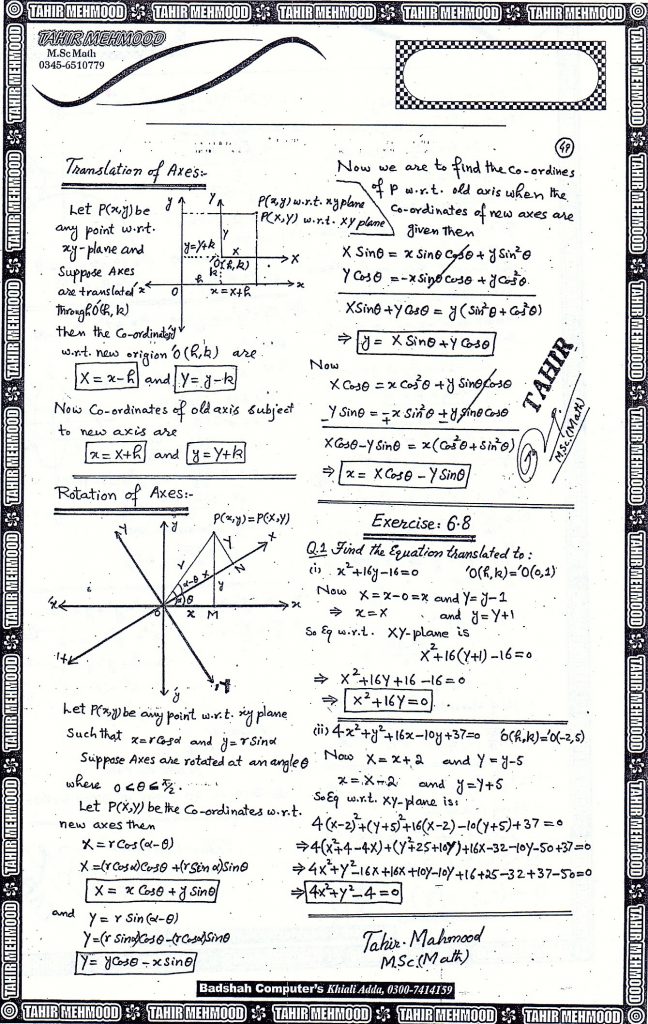 TAHIR MEHMOOD TAHIR MEHMOOD TAHIR MEHMOOD TAHIR MEHMOOD TAHIR MEHMOOD
TAHIR MEHMOOD
M.Sc Math
0345-6510779
49
Translation of Axes:-
Let P(x,y) be
any point w.r.t.
xy-plane and
Suppose Axes
are translated
through O'(h,k)
then the Co-ordinates
w.r.t. new origion 'O(h,k) are
X = x-h and Y = y-k
Now Co-ordinates of old axis subject
to new axis are
x = X+h and y = Y+k
y Y
P(x,y) w.r.t. xy plane
P(X,Y) w.r.t. XY plane
y=Y+k
Y
X
O'(h,k)
X
k
h
x O x=X+h x
y
Rotation of Axes:-
Y y P(x,y)=P(X,Y)
X
r Y
α-θ X N
y
θ
x O x M x
y
Let P(x,y) be any point w.r.t. xy plane
Such that x=rCosα and y=rSinα
Suppose Axes are rotated at an angle θ
where 0≤θ≤π/2.
Let P(X,Y) be the Co-ordinates w.r.t.
new axes then
X = r Cos(α-θ)
X = (rCosα)Cosθ + (rSinα)Sinθ
X = x Cosθ + y Sinθ
and Y = r Sin(α-θ)
Y = (r Sinα)Cosθ - (rCosα)Sinθ
Y = yCosθ - xSinθ
Now we are to find the Co-ordines
of P w.r.t. old axis when the
Co-ordinates of new axes are
given then
X Sinθ = x Sinθ Cosθ + y Sin²θ
Y Cosθ = -x Sinθ Cosθ + y Cos²θ
XSinθ + Y Cosθ = y (Sin²θ + Cos²θ)
⇒ y = X Sinθ + Y Cosθ
Now
X Cosθ = x Cos²θ + y Sinθ Cosθ
-Y Sinθ = ∓x Sin²θ ± y Sinθ Cosθ
XCosθ - Y Sinθ = x(Cos²θ + Sin²θ)
⇒ x = X Cosθ - Y Sinθ
TAHIR
M.Sc.(Math)
Exercise: 6.8
Q.1 Find the Equation translated to:
(i) x²+16y-16=0 'O(h,k)='O(0,1)
Now X = x-0 = x and Y = y-1
⇒ x = X and y = Y+1
So Eq w.r.t. XY-plane is
X²+16(Y+1)-16=0
⇒ X²+16Y+16-16=0
⇒ X²+16Y=0
(ii) 4x²+y²+16x-10y+37=0 O'(h,k)='O(-2,5)
Now X = x+2 and Y = y-5
x = X-2 and y = Y+5
So Eq w.r.t. XY-plane is:
4(X-2)²+(Y+5)²+16(X-2)-10(Y+5)+37=0
⇒ 4(X²+4-4X)+(Y²+25+10Y)+16X-32-10Y-50+37=0
⇒ 4X²+Y²-16X+16X+10Y-10Y+16+25-32+37-50=0
⇒ 4X²+Y²-4=0
Tahir Mahmood
M.Sc.(Math)
Badshah Computer's Khiali Adda, 0300-7414159
TAHIR MEHMOOD TAHIR MEHMOOD TAHIR MEHMOOD TAHIR MEHMOOD TAHIR MEHMOOD